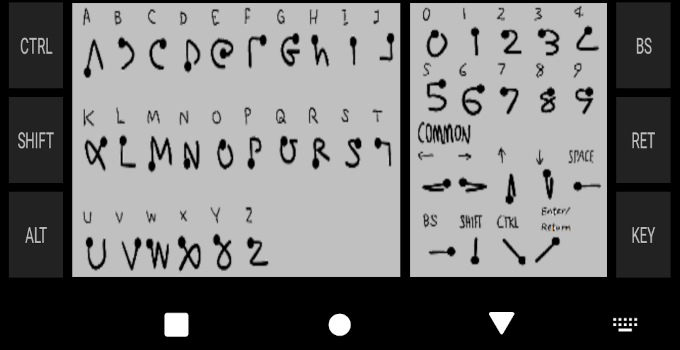 CTRL
SHIFT
ALT
A B C D E F G H I J
K L M N O P Q R S T
U V W X Y Z
0 1 2 3 4
0 1 2 3 4
5 6 7 8 9
5 6 7 8 9
COMMON
← → ↑ ↓ SPACE
BS SHIFT CTRL Enter/
Return
BS
RET
KEY